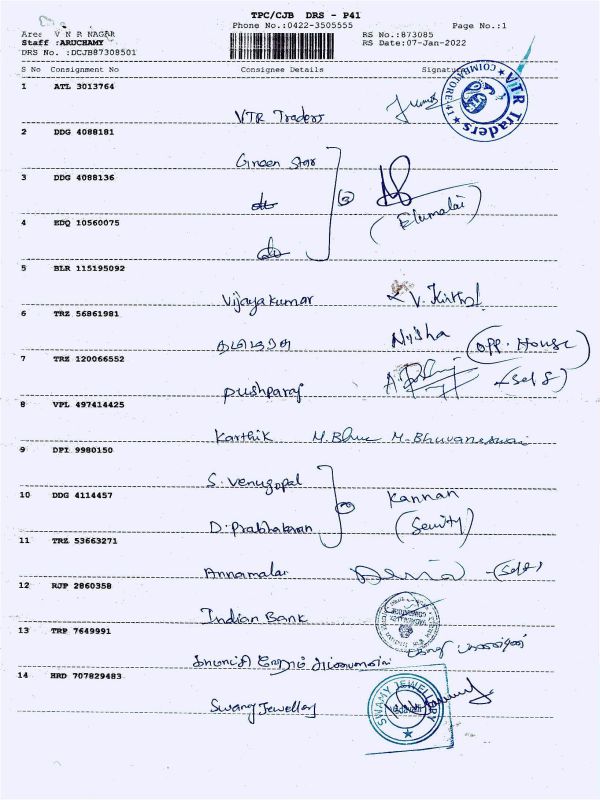 TPC/CJB DRS - P41
Phone No.:0422-3505555 Page No.:1
Area: V N R NAGAR RS No.:873085
Staff :ARUCHAMY RS Date:07-Jan-2022
DRS No. :DCJB87308501
S No Consignment No Consignee Details Signature
1 ATL 3013764
VTR Traders
VTR Traders COIMBATORE-41
2 DDG 4088181
Green Star
3 DDG 4088136
(Elumalai)
4 EDQ 10560075
5 BLR 115195092
Vijayakumar
6 TRZ 56861981
Nisha (Opp. House)
7 TRZ 120066552
Pushparaj (Self)
8 VPL 497414425
Karthik M. Bhuvaneswari
9 DPI 9980150
S. Venugopal
10 DDG 4114457
Kannan
D. Prabhakaran (Seurity)
11 TRZ 53663271
Annamalai (Self)
12 RJP 2860358
Indian Bank
13 TRP 7649991
14 HRD 707829483
Swamy Jewellery
SWAMY JEWELLERY